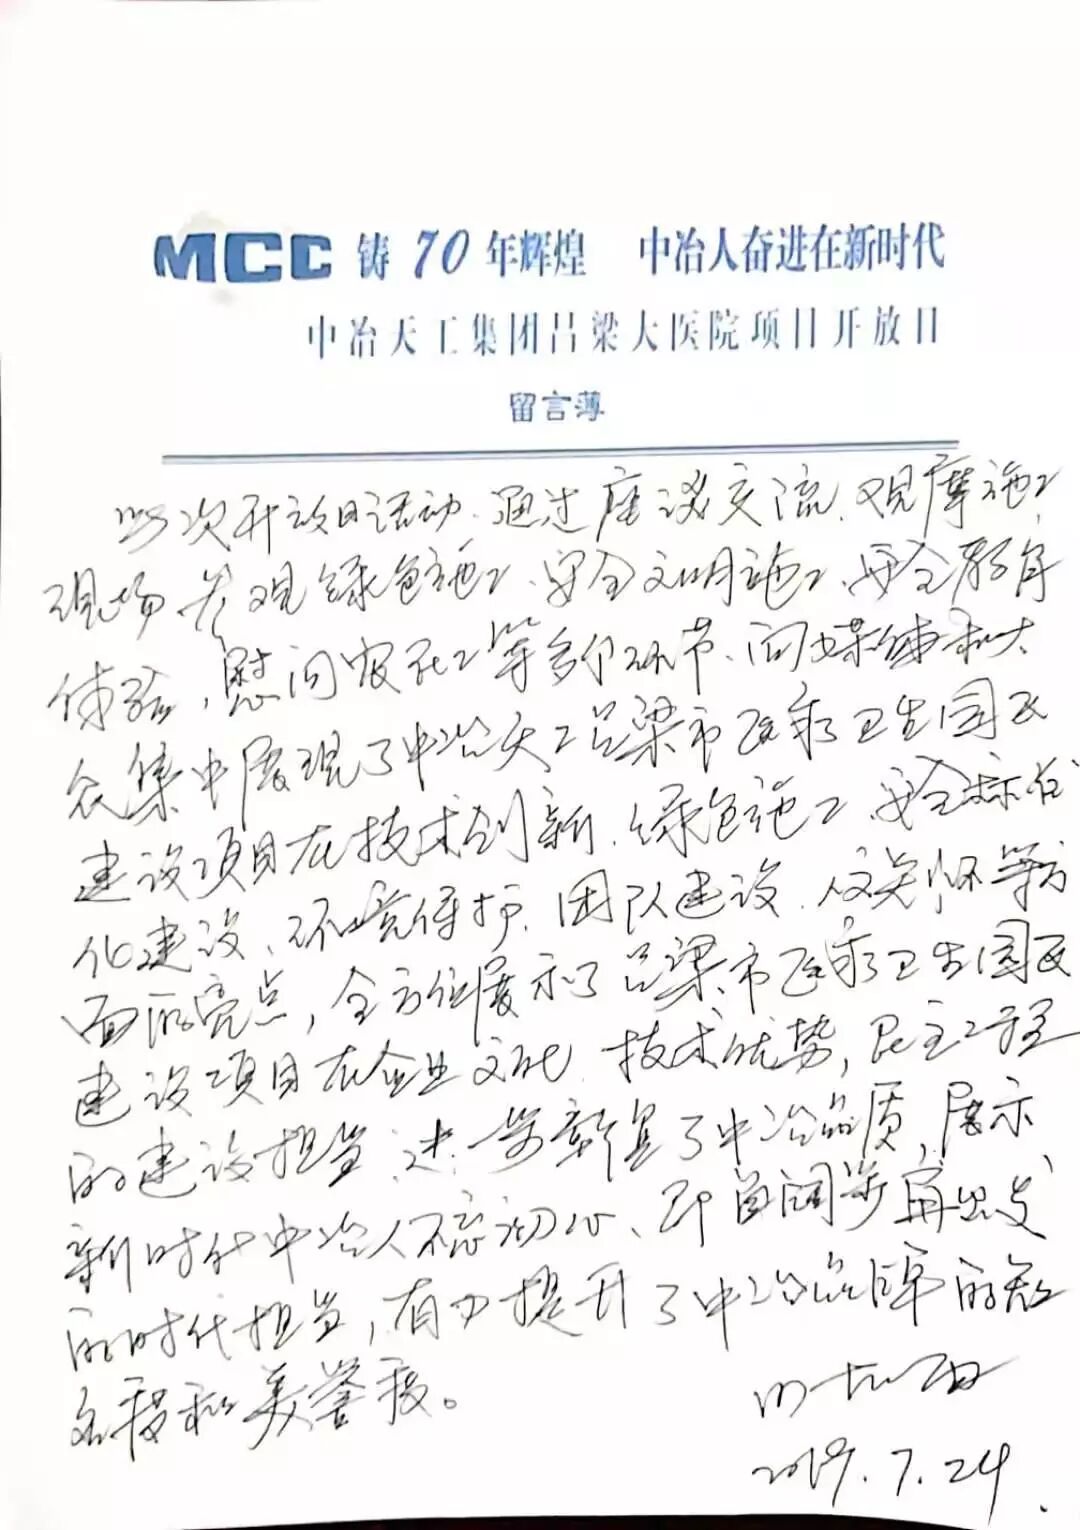 MCC 铸70年辉煌 中冶人奋进在新时代
中冶天工集团吕梁大医院项目开放日
留言薄
此次开放日活动、通过座谈交流、观摩施工
现场、参观绿色施工、安全文明施工、安全教育
体验，慰问农民工等多个环节、向媒体和大
众集中展现了中冶天工吕梁市医疗卫生园区
建设项目在技术创新、绿色施工、安全标准
化建设、环境保护、团队建设、人文关怀等方
面的亮点，全方位展示了吕梁市医疗卫生园区
建设项目在企业文化、技术优势，民生工程
的建设担当、进一步彰显了中冶品质，展示
新时代中冶人不忘初心、昂首阔步再出发
的时代担当，有力提升了中冶品牌的知
名度和美誉度。
2019.7.24